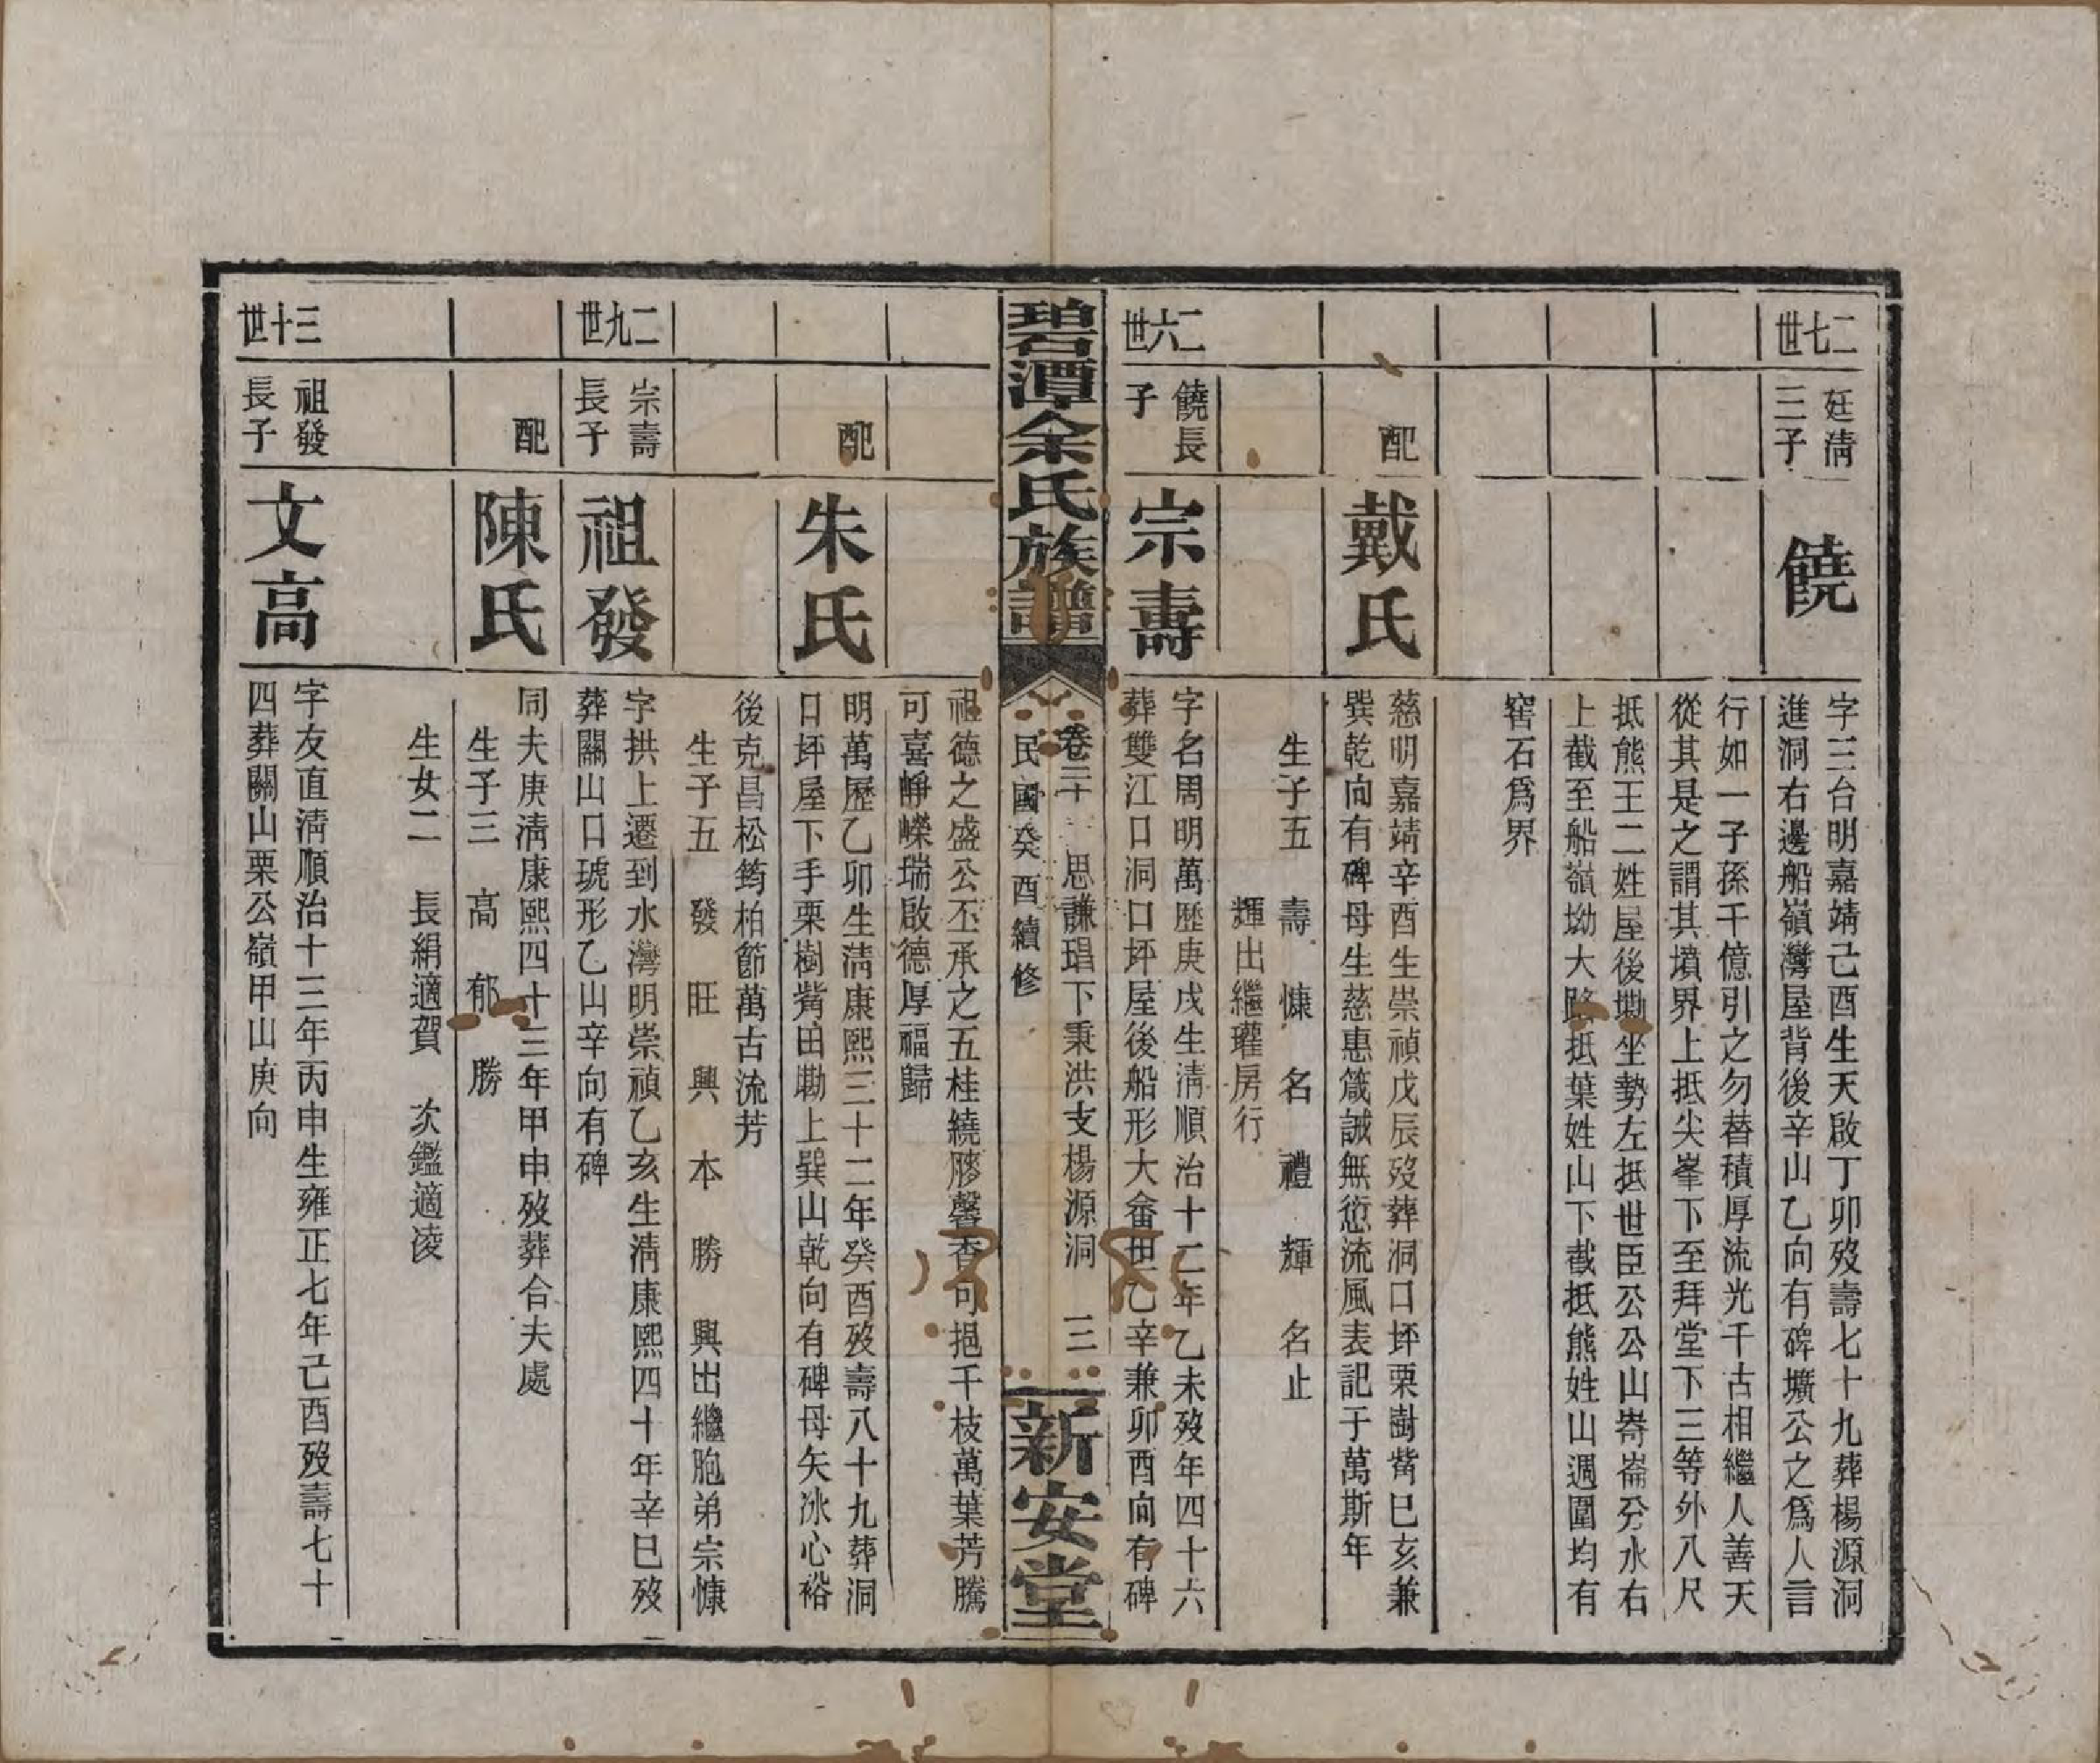 二七世
廷清
三子
饒
字三台明嘉靖己酉生天啟丁卯歿壽七十九葬楊源洞
進洞右邊船嶺灣屋背後辛山乙向有碑壙公之為人言
行如一子孫千億引之勿替積厚流光千古相繼人善天
從其是之謂其墳界上抵尖峯下至拜堂下三等外八尺
抵熊王二姓屋後墈坐勢左抵世臣公公山崙分水右
上截至船嶺坳大路抵葉姓山下截抵熊姓山週圍均有
窖石為界
配
戴氏
慈明嘉靖辛酉生崇禎戊辰歿葬洞口坪栗樹觜巳亥兼
巽乾向有碑母生慈惠箴誡無愆流風表記于萬斯年
生子五　壽　慷　名　禮　輝　名止
輝出繼瓘房行
二六世
饒長
子
宗壽
字名周明萬歷庚戌生清順治十二年乙未歿年四十六
葬雙江口洞口坪屋後船形大畬世乙辛兼卯酉向有碑
碧石潭余氏族譜
卷三十　思謙琩下秉洪支楊源洞　三
民國癸酉續修
新安堂
祖德之盛公丕承之五桂繞膝馨香可挹千枝萬葉芳騰
可喜崢嶸瑞啟德厚福歸
配
朱氏
明萬歷乙卯生清康熙三十二年癸酉歿壽八十九葬洞
口坪屋下手栗樹觜田墈上巽山乾向有碑母矢冰心裕
後克昌松筠柏節萬古流芳
生子五　發　旺　興　本　勝　興出繼胞弟宗慷
二九世
宗壽
長子
祖發
字拱上遷到水灣明崇禎乙亥生清康熙四十年辛巳歿
葬關山口琥形乙山辛向有碑
配
陳氏
同夫庚清康熙四十三年甲申歿葬合夫處
生子三　高　郁　勝
生女二　長絹適賀　次鑑適凌
三十世
祖發
長子
文高
字友直清順治十三年丙申生雍正七年己酉歿壽七十
四葬關山栗公嶺甲山庚向